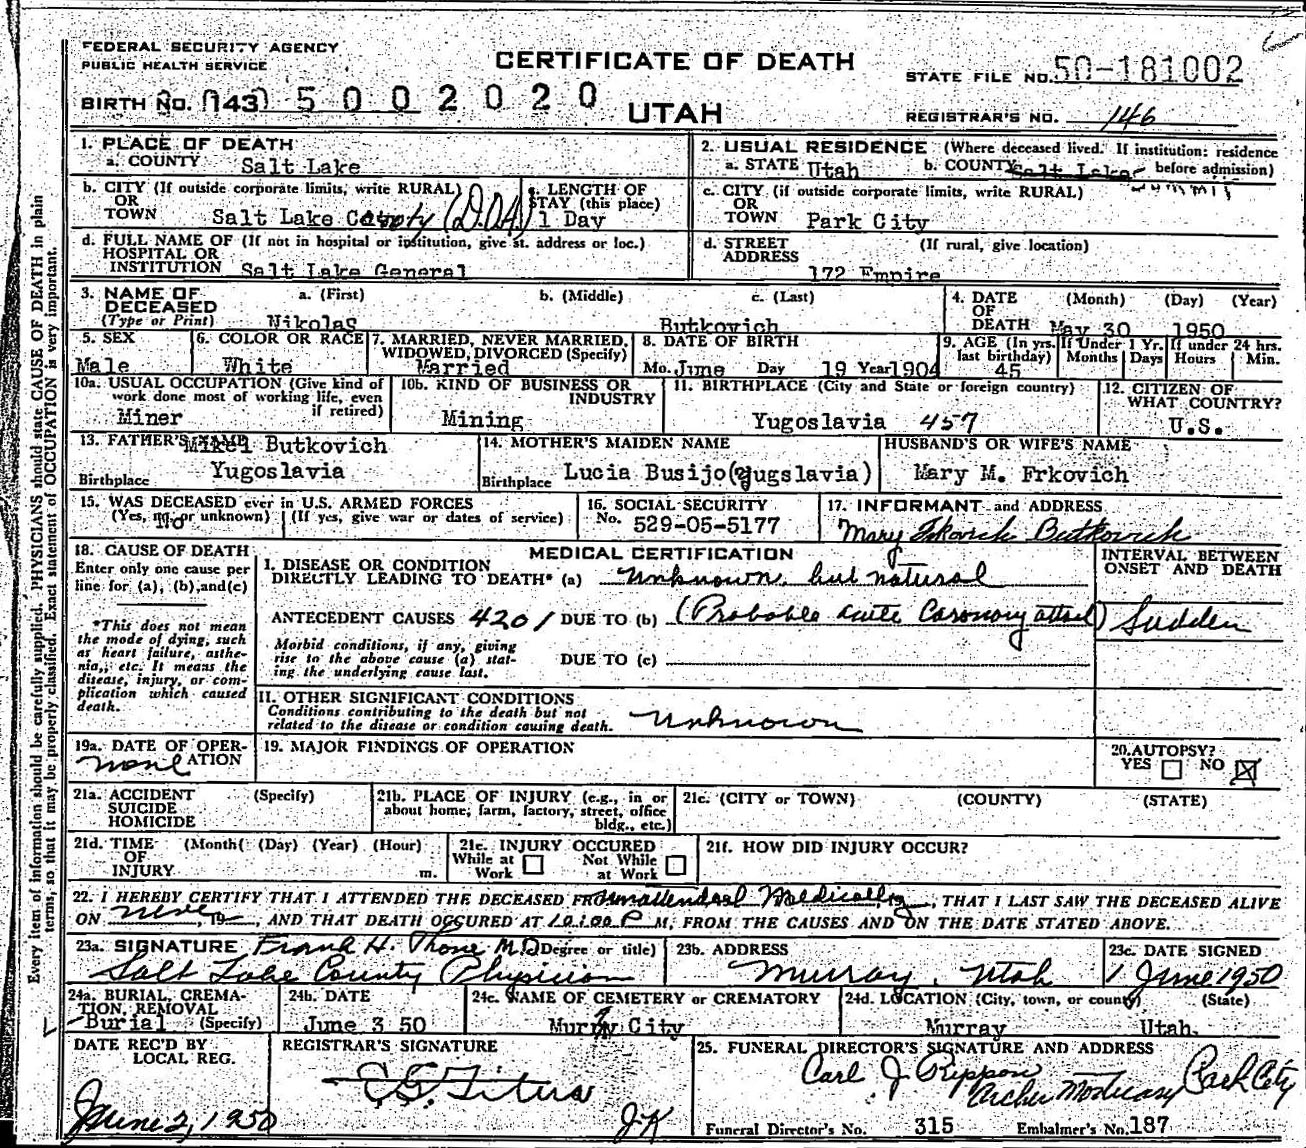 FEDERAL SECURITY AGENCY
PUBLIC HEALTH SERVICE
CERTIFICATE OF DEATH
STATE FILE NO. 50-181002
BIRTH NO. 143 5 0 0 2 0 2 0
UTAH
REGISTRAR'S NO. 146
1. PLACE OF DEATH
a. COUNTY Salt Lake
2. USUAL RESIDENCE (Where deceased lived. If institution: residence before admission)
a. STATE Utah b. COUNTY Salt Lake Summit
b. CITY (If outside corporate limits, write RURAL) OR TOWN Salt Lake County (D.O.A.)
c. LENGTH OF STAY (this place) 1 Day
c. CITY (if outside corporate limits, write RURAL) OR TOWN Park City
d. FULL NAME OF (If not in hospital or institution, give st. address or loc.) HOSPITAL OR INSTITUTION Salt Lake General
d. STREET ADDRESS (If rural, give location) 172 Empire
3. NAME OF DECEASED (Type or Print) a. (First) b. (Middle) c. (Last)
Nikolas Butkovich
4. DATE OF DEATH (Month) (Day) (Year) May 30 1950
5. SEX Male
6. COLOR OR RACE White
7. MARRIED, NEVER MARRIED, WIDOWED, DIVORCED (Specify) Married
8. DATE OF BIRTH Mo. June Day 19 Year 1904
9. AGE (In yrs. last birthday) 45
If Under 1 Yr. Months Days
If under 24 hrs. Hours Min.
10a. USUAL OCCUPATION (Give kind of work done most of working life, even if retired) Miner
10b. KIND OF BUSINESS OR INDUSTRY Mining
11. BIRTHPLACE (City and State or foreign country) Yugoslavia 457
12. CITIZEN OF WHAT COUNTRY? U.S.
13. FATHER'S NAME Mikel Butkovich
Birthplace Yugoslavia
14. MOTHER'S MAIDEN NAME
Birthplace Lucia Busijo (Yugslavia)
HUSBAND'S OR WIFE'S NAME
Mary M. Frkovich
15. WAS DECEASED ever in U.S. ARMED FORCES
(Yes, no or unknown) No (If yes, give war or dates of service)
16. SOCIAL SECURITY No. 529-05-5177
17. INFORMANT and ADDRESS
Mary Frkovich Butkovich
18. CAUSE OF DEATH
Enter only one cause per line for (a), (b), and (c)
*This does not mean the mode of dying, such as heart failure, asthenia, etc. It means the disease, injury, or complication which caused death.
MEDICAL CERTIFICATION
INTERVAL BETWEEN ONSET AND DEATH
I. DISEASE OR CONDITION DIRECTLY LEADING TO DEATH* (a) Unknown, but natural
ANTECEDENT CAUSES 4201 DUE TO (b) (Probable acute Coronory attack) Sudden
Morbid conditions, if any, giving rise to the above cause (a) stating the underlying cause last.
DUE TO (c)
II. OTHER SIGNIFICANT CONDITIONS
Conditions contributing to the death but not related to the disease or condition causing death. Unknown
19a. DATE OF OPERATION none
19. MAJOR FINDINGS OF OPERATION
20. AUTOPSY?
YES NO
21a. ACCIDENT SUICIDE HOMICIDE (Specify)
21b. PLACE OF INJURY (e.g., in or about home, farm, factory, street, office bldg., etc.)
21c. (CITY OR TOWN) (COUNTY) (STATE)
21d. TIME OF INJURY (Month) (Day) (Year) (Hour) m.
21e. INJURY OCCURED While at Work Not While at Work
21f. HOW DID INJURY OCCUR?
22. I HEREBY CERTIFY THAT I ATTENDED THE DECEASED FROM unattended Medically, THAT I LAST SAW THE DECEASED ALIVE
ON None, 19 , AND THAT DEATH OCCURED AT 10:00 P M, FROM THE CAUSES AND ON THE DATE STATED ABOVE.
23a. SIGNATURE Frank H. Thone M.D (Degree or title)
Salt Lake County Physician
23b. ADDRESS
Murray, Utah
23c. DATE SIGNED
1 June 1950
24a. BURIAL, CREMATION, REMOVAL (Specify) Burial
24b. DATE June 3 50
24c. NAME OF CEMETERY or CREMATORY Murray City
24d. LOCATION (City, town, or county) (State) Murray Utah.
DATE REC'D BY LOCAL REG.
June 2, 1950
REGISTRAR'S SIGNATURE
C.G. Titus
J.K
25. FUNERAL DIRECTOR'S SIGNATURE AND ADDRESS
Carl J. Rippon
Archer Mortuary Park City
Funeral Director's No. 315 Embalmer's No. 187
Every item of information should be carefully supplied. PHYSICIANS should state CAUSE OF DEATH in plain
terms, so that it may be properly classified. Exact statement of OCCUPATION is very important.